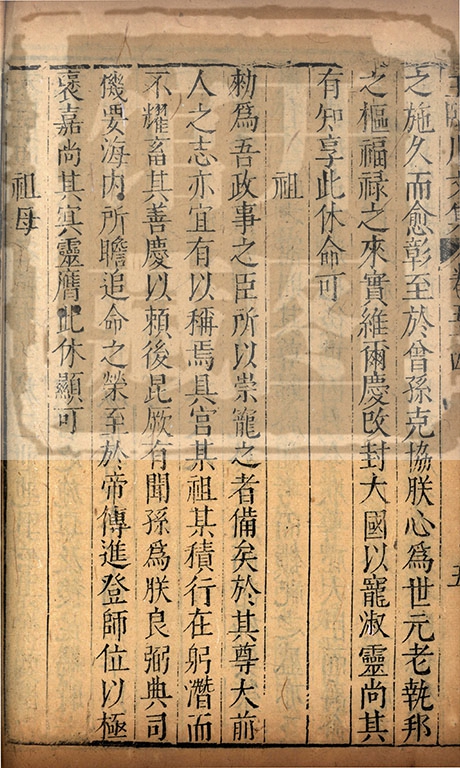 王臨川文集 卷五十四 五
之施久而愈彰至於曾孫克協朕心爲世元老執邦
之樞福祿之來實維爾慶改封大國以寵淑靈尚其
有知享此休命可
祖
勑爲吾政事之臣所以崇寵之者備矣於其尊大前
人之志亦宜有以稱焉具官某祖某積行在躬潛而
不耀畜其善慶以賴後昆厥有聞孫爲朕良弼典司
機要海内所瞻追命之榮至於帝傅進登師位以極
褒嘉尚其冥靈膺此休顯可
祖母